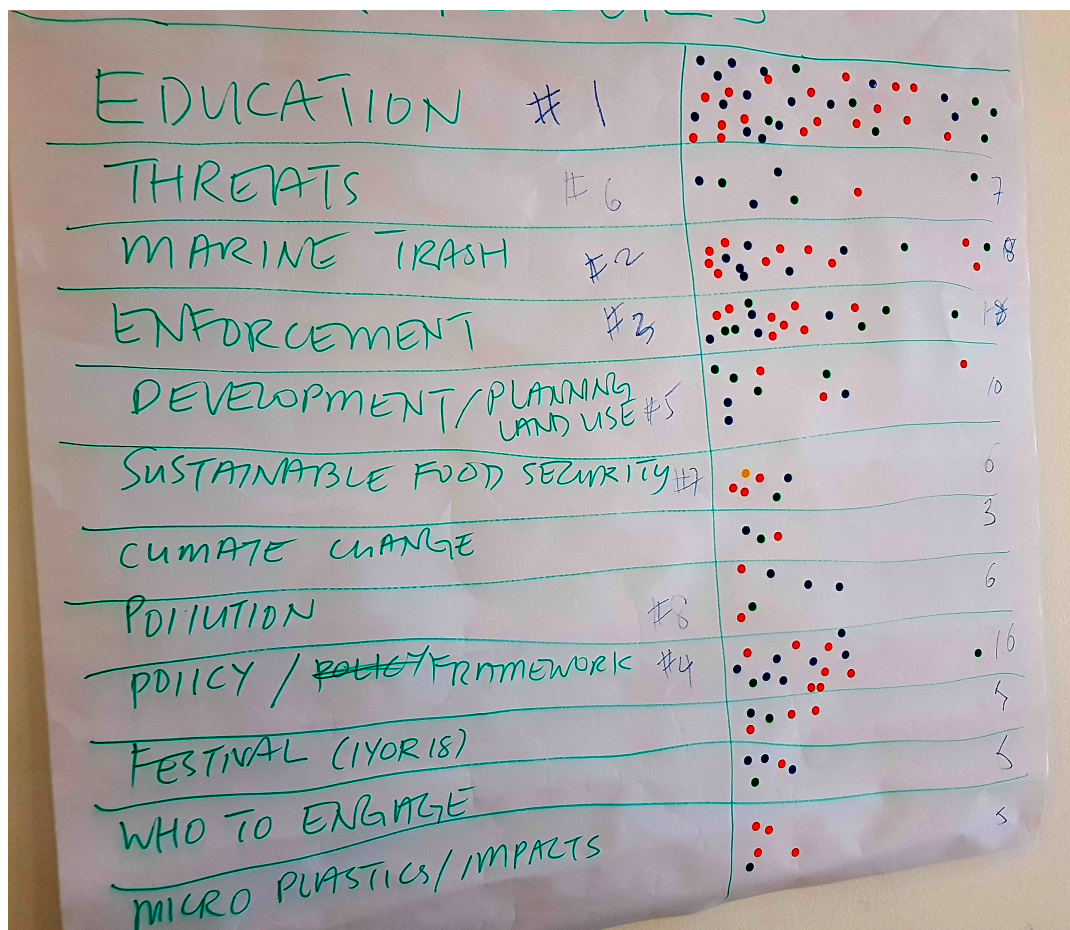 EDUCATION #1
THREATS #6 7
MARINE TRASH #2 18
ENFORCEMENT #3 18
DEVELOPMENT/PLANNING
LAND USE #5 10
SUSTAINABLE FOOD SEZURITY #7 6
CLIMATE CHANGE 3
POLLUTION #8 6
POLICY / POLICY/FRAMEWORK #4 16
FESTIVAL (IYOR18) 5
WHO TO ENGAGE 5
MICRO PLASTICS/IMPACTS 5